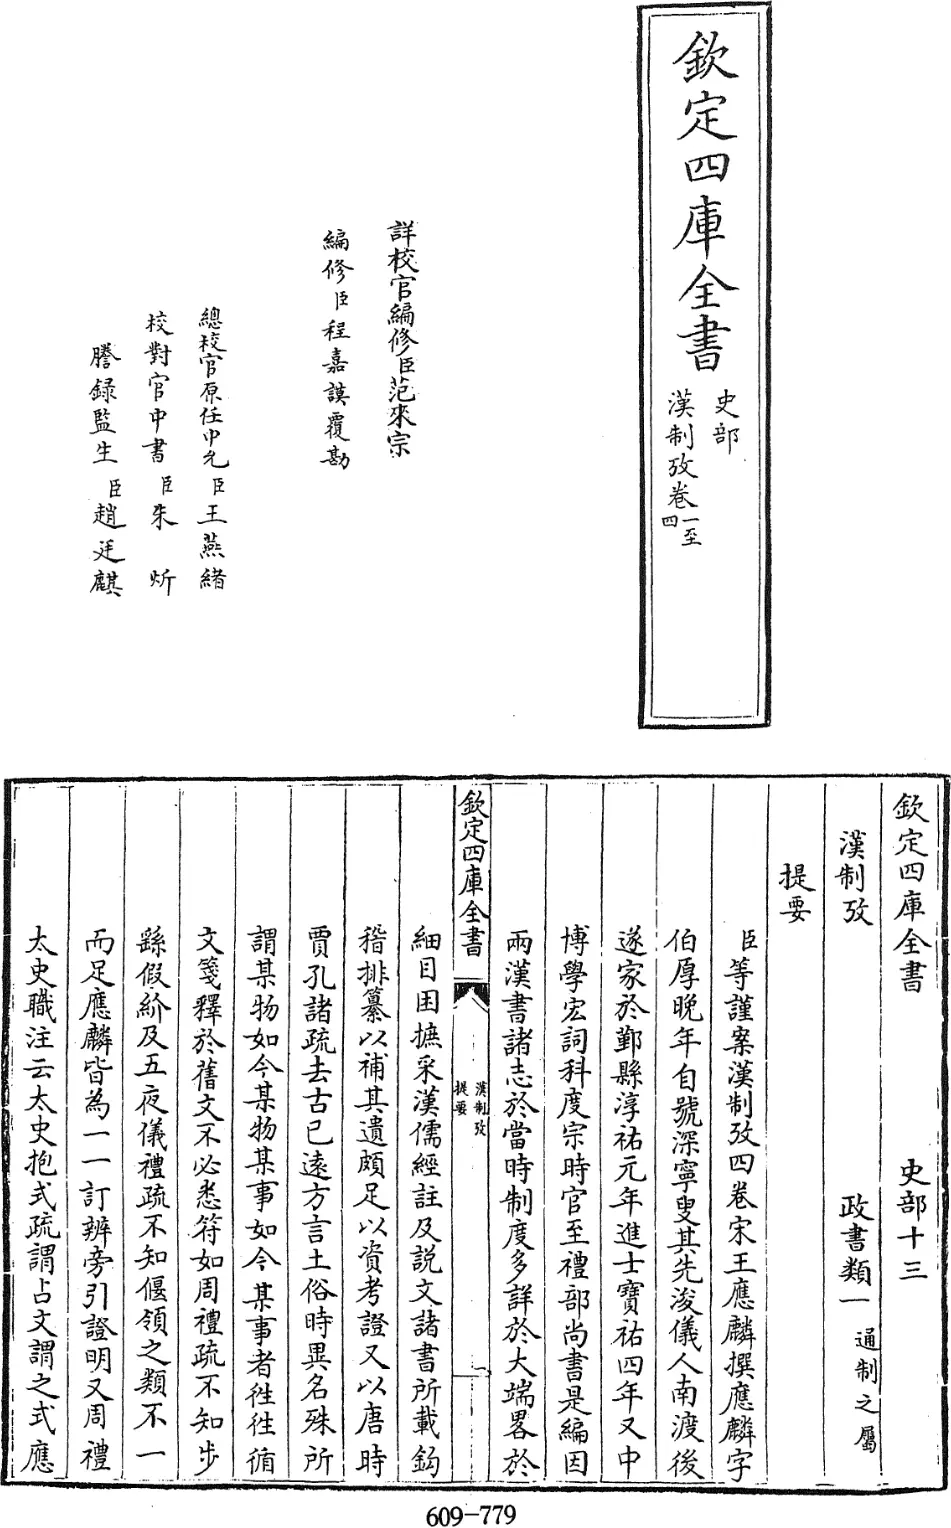 欽定四庫全書
史部
漢制攷卷一至四
詳校官編修臣范來宗
編修臣程嘉謨覆勘
總校官原任中允臣王燕緒
校對官中書臣朱炘
謄錄監生臣趙廷麒
欽定四庫全書 史部十三
漢制攷 政書類一通制之屬
提要
臣等謹案漢制攷四卷宋王應麟撰應麟字
伯厚晚年自號深寧叟其先浚儀人南渡後
遂家於鄞縣淳祐元年進士寶祐四年又中
博學宏詞科度宗時官至禮部尚書是編因
兩漢書諸志於當時制度多詳於大端畧於
欽定四庫全書
漢制攷
提要
一
細目因摭采漢儒經註及説文諸書所載鈎
稽排纂以補其遺頗足以資考證又以唐時
賈孔諸疏去古已遠方言土俗時異名殊所
謂某物如今某物某事如今某事者徃徃循
文箋釋於舊文不必悉符如周禮疏不知步
繇假紒及五夜儀禮疏不知偃領之類不一
而足應麟皆為一一訂辨旁引證明又周禮
太史職注云太史抱式疏謂占文謂之式應
609-779